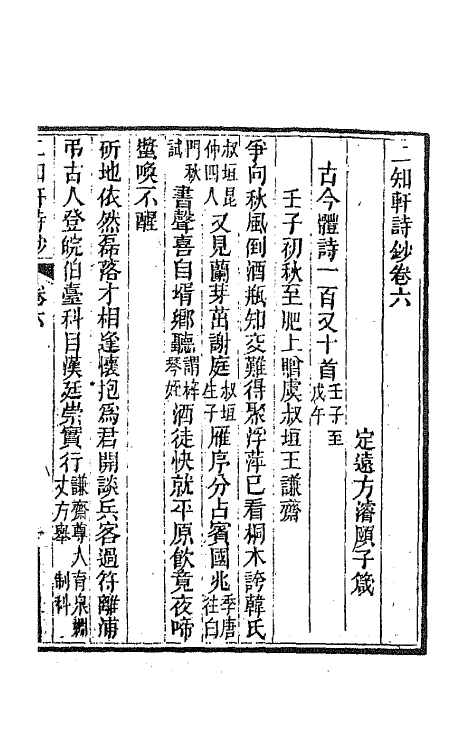 二知軒詩鈔卷六
定遠方濬頤子箴
古今體詩一百又十首壬子至戊午
壬子初秋至肥上贈虞叔垣王謙齋
爭向秋風倒酒瓶知交難得聚浮萍已看桐木誇韓氏
叔垣昆仲四人又見蘭芽茁謝庭叔垣生子雁序分占賓國兆季唐往白
門秋試書聲喜自壻鄉聽謂梓琴姪酒徒快就平原飲竟夜啼
螿喚不醒
斫地依然磊落才相逢懷抱爲君開談兵客過符離浦
弔古人登皖伯臺科目漢廷崇實行謙齋尊人育泉丈方舉 制科
二知軒詩鈔 卷六